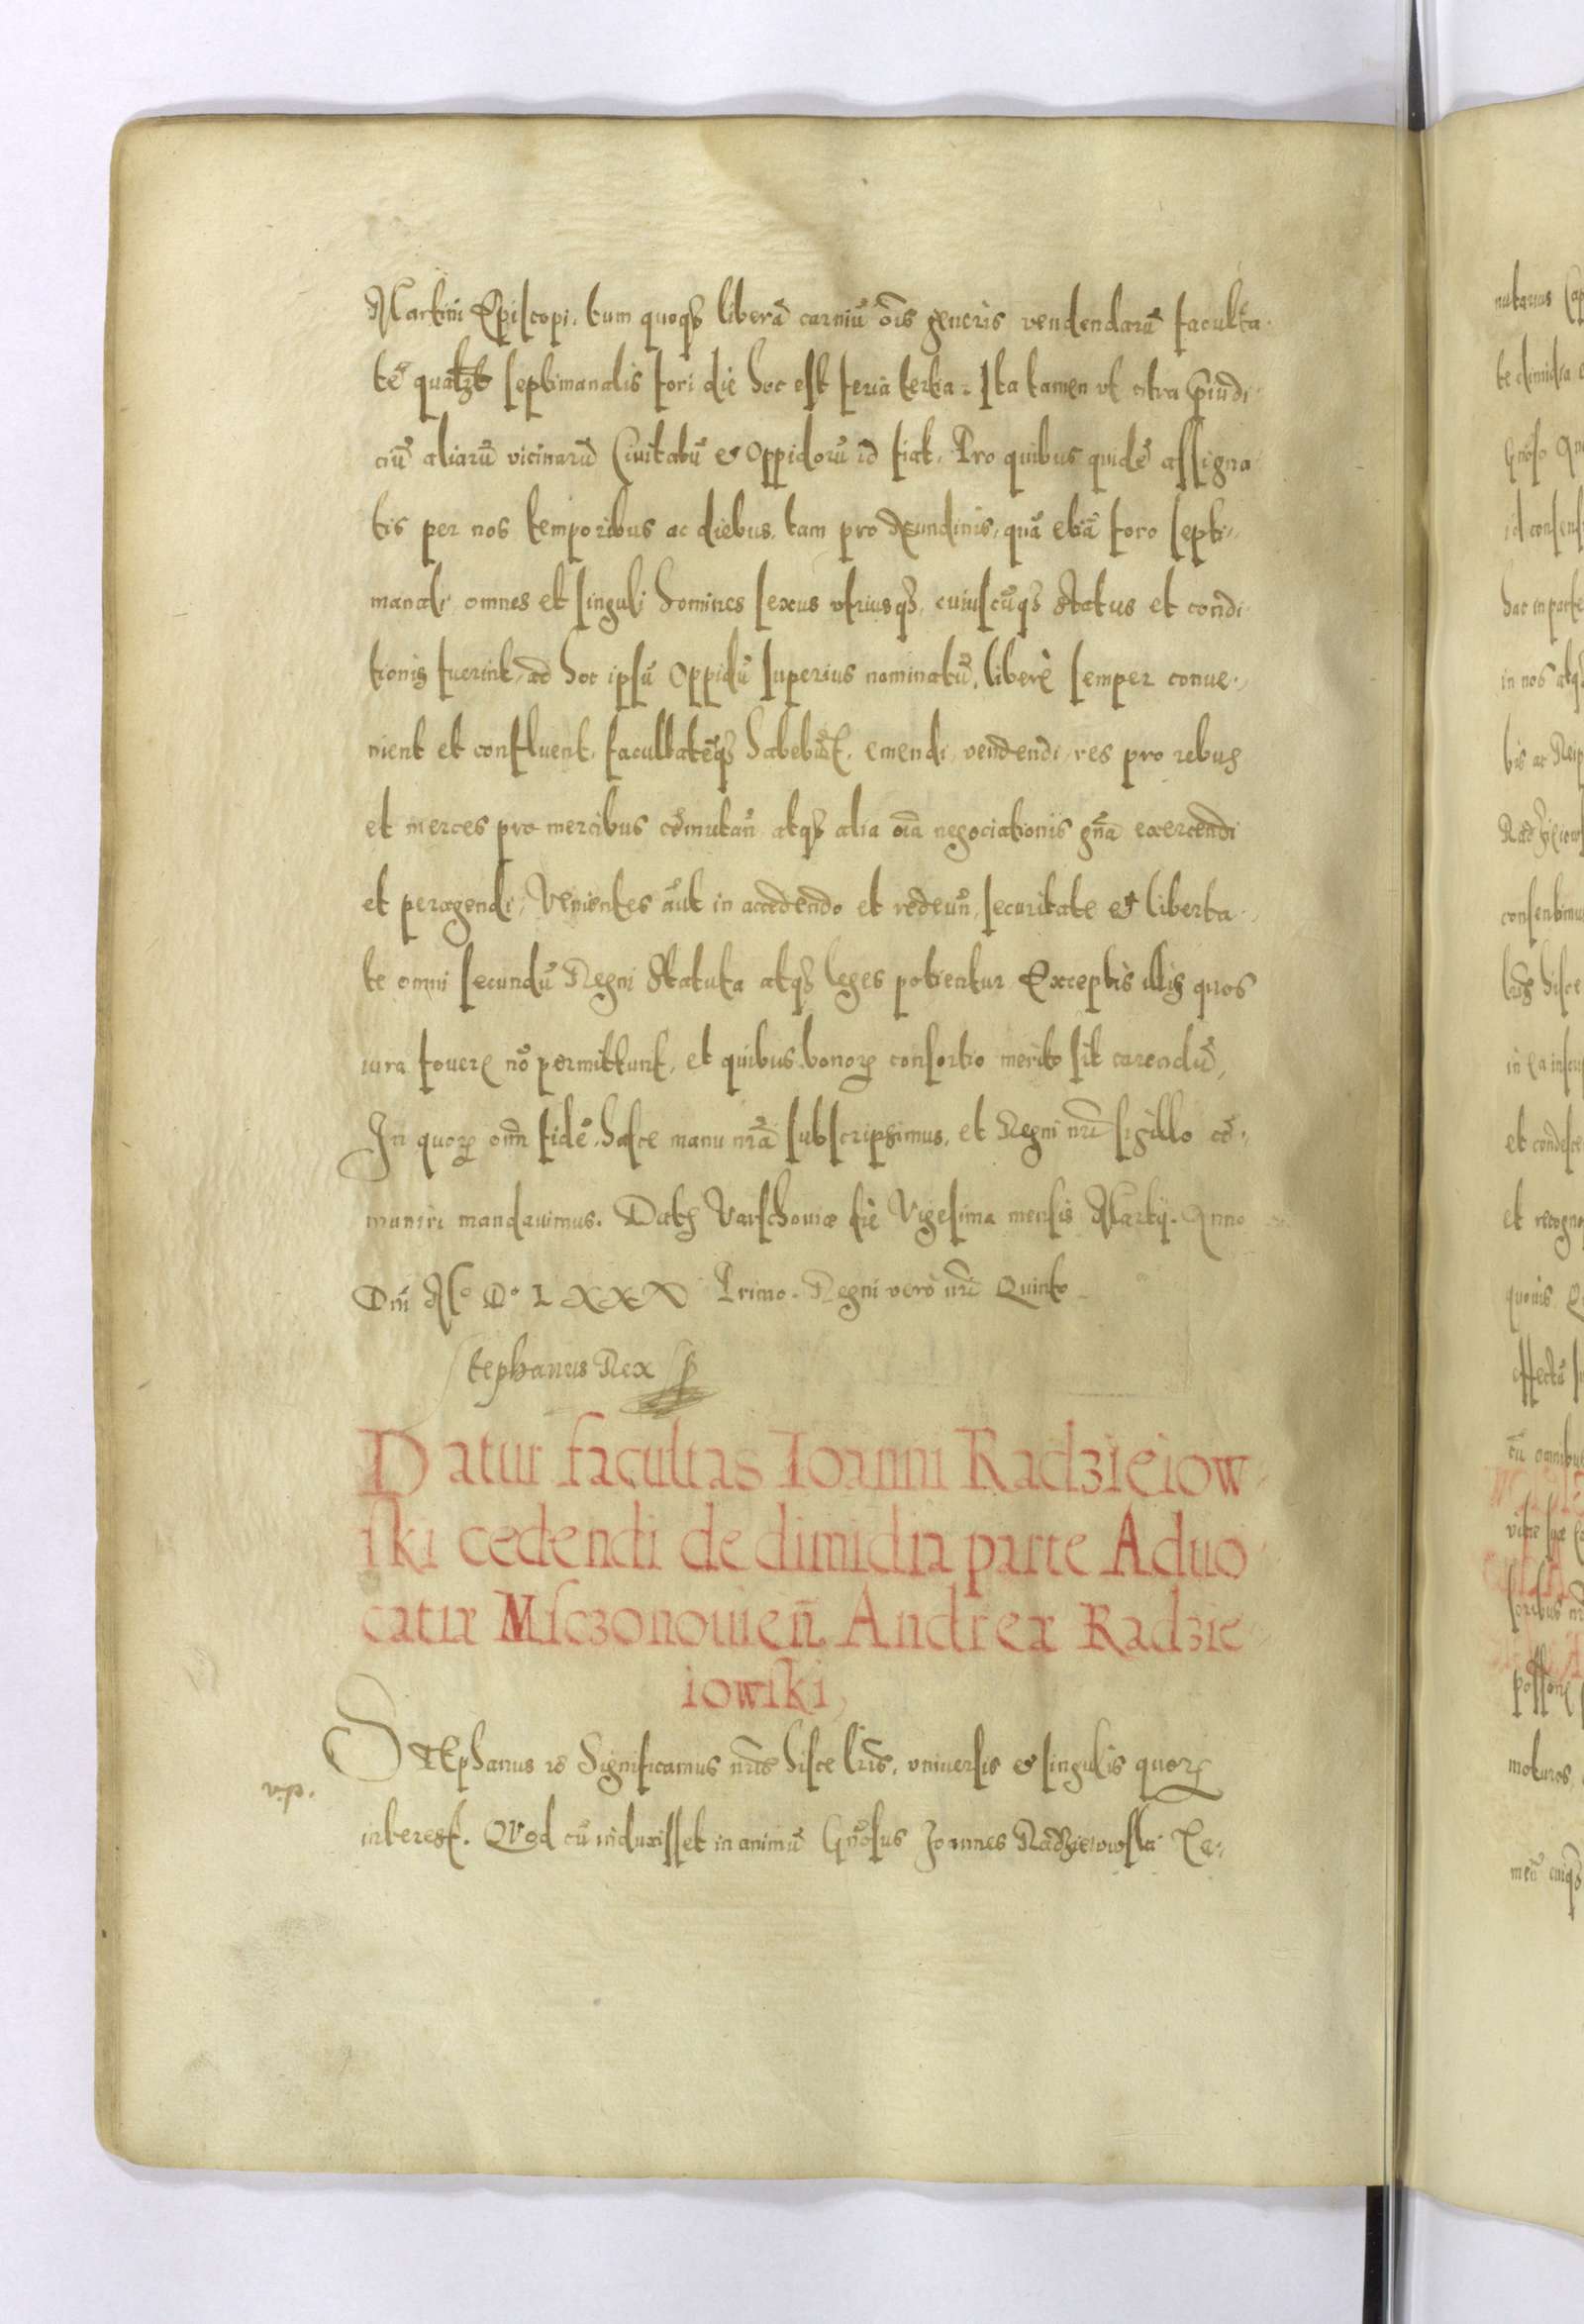 Martini Episcopi, tum quoqꝫ liberā carniū oīs generis vendendarū faculta
tē qualꝫt septimanalis fori die hoc est feria tertia. Ita tamen vt citra p̄iudi
ciū aliarū vicinarū Ciuitatū et Oppidorū id fiat. Pro quibus quidē assigna
tis per nos temporibus ac diebus, tam pro nundinis, quā etiā foro septi
manali omnes et singuli homines sexus vtriusqꝫ, cuiuscūqꝫ status et condi
tionis fuerint, ad hoc ipsū Oppidū superius nominatū, liberè semper conue
nient et confluent, facultatēqꝫ habebūt, emendi, vendendi, res pro rebus
et merces pro mercibus cōmutan̄ atqꝫ alia oīa negociationis gn̄a exercendi
et peragendi, Venientes aūt in accedendo et redeun̄, securitate et liberta
te omni secundū Regni Statuta atqꝫ leges potientur Exceptis illis quos
iura fouere nō permittunt, et quibus bonorꝫ consortio meritò sit carendū,
In quorꝫ om̄ fidē hasce manu nr̄a subscripsimus, et Regni nr̄i sigillo cō
muniri mandauimus. Datꝫ Varschouiæ die Vigesima mensis Martij. Anno
Dni M.o D.o LXXX Primo. Regni verò nr̄i Quinto
Stephanus Rex
Datur facultas Ioanni Radzieiow
ski cedendi de dimidia parte Aduo
catiæ Msczonouien̄ Andreæ Radzie
iowski,
STEphanus etc Significamus nr̄is hisce lr̄is, vniuersis et singulis quorꝫ
v.p.
interest. QVod cū induxisset in animū Gn̄osus Joannes Radzieiowski
nutarius
te dimidia
Gn̄oso
id consens
hac in parte
in nos atqꝫ
bis ac Reip
Radzieiow
consentimus
lr̄is hisce
in ea inscri
et condesce
et recogno
quouis
effectū
cū omnibus
vitæ suæ
soribus
moturos,